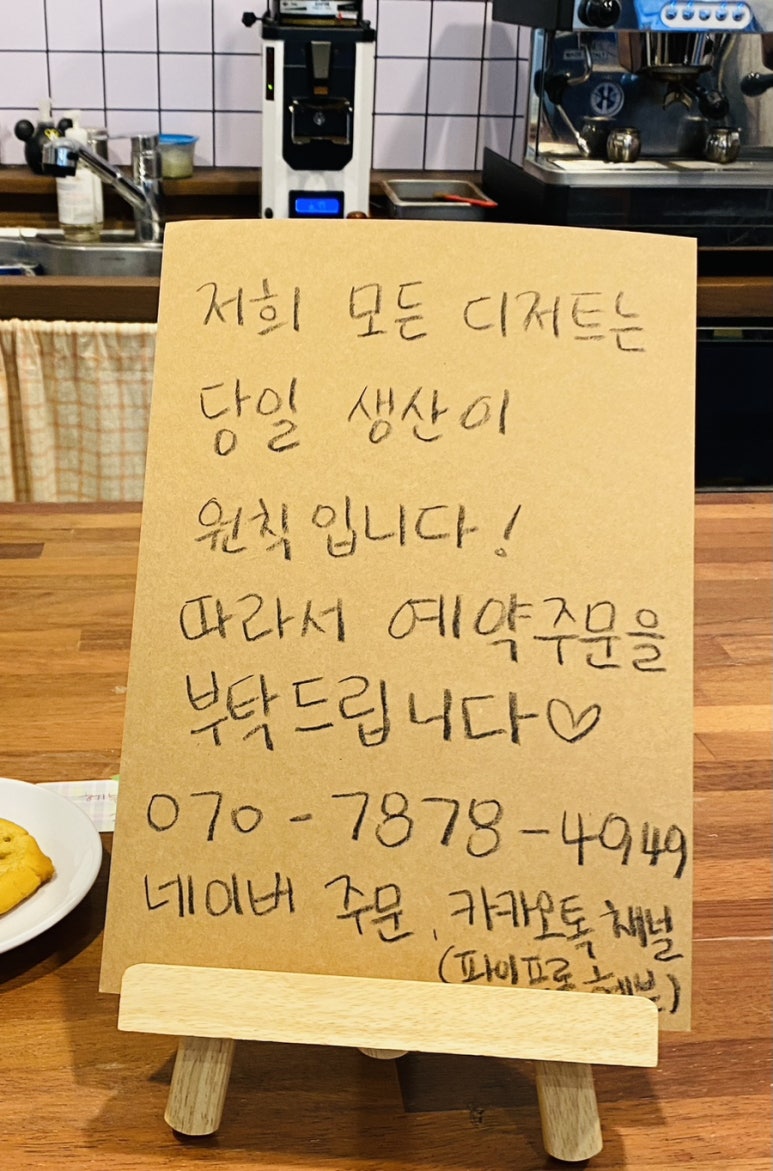 저희 모든 디저트는
당일 생산이
원칙입니다!
따라서 예약주문을
부탁드립니다♡
070-7878-4949
네이버 주문, 카카오톡 채널
(파이프로헤븐)